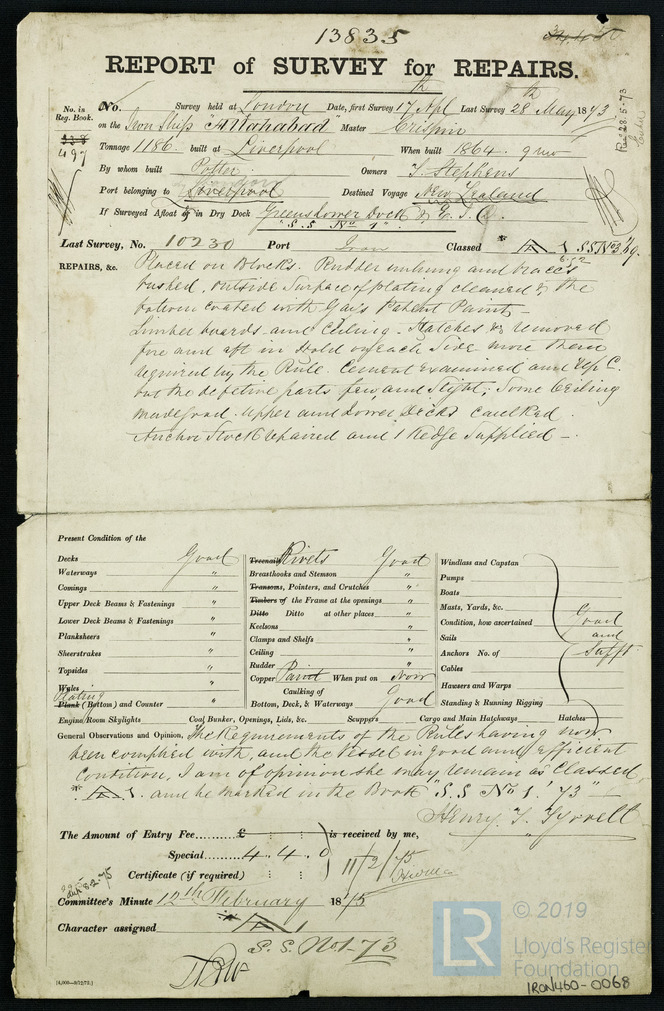 13835
REPORT of SURVEY for REPAIRS.
No. in Reg. Book.
497
No. Survey held at London Date, first Survey 17th Apl Last Survey 28th May 1873
Rec 28.5.73
on the Iron Ship "Allahabad" Master Crispin
Tonnage 1186 built at Liverpool When built 1864.
By whom built Potter Owners T. Stephens
Port belonging to Liverpool Destined Voyage New Zealand
If Surveyed Afloat or in Dry Dock Greens Lower Dock & E. I. D.
"S.S No 1".
Last Survey, No. 10230 Port Iron Classed A 1 SSNo3
6.72
REPAIRS, &c. Placed on blocks. Rudder unhung and braces
bushed, outside Surface of plating cleaned & the
bottom coated with Gay's Patent Paint
Limber boards and Ceiling. Hatches &c removed
fore and aft in Hold on each Side more than
required by the Rule. Cement examined and
out the defective parts few and slight; Some Ceiling
made good. Upper and Lower Decks caulked.
Anchor Stock repaired and 1 Kedge Supplied –.
Present Condition of the
Decks Good
Waterways "
Comings "
Upper Deck Beams & Fastenings "
Lower Deck Beams & Fastenings "
Planksheers "
Sheerstrakes "
Topsides "
Wales "
Plating
Plank (Bottom) and Counter "
Treenails Rivets Good
Breasthooks and Stemson "
Transoms, Pointers, and Crutches "
Timbers of the Frame at the openings "
Ditto Ditto at other places "
Keelsons "
Clamps and Shelfs "
Ceiling "
Rudder "
Copper Paint When put on Now
Caulking of
Bottom, Deck, & Waterways Good
Windlass and Capstan
Pumps
Boats
Masts, Yards, &c.
Condition, how ascertained
Sails
Anchors No. of
Cables
Hawsers and Warps
Standing & Running Rigging
Good
and
Sufft
Engine Room Skylights Coal Bunker, Openings, Lids, &c. Scuppers Cargo and Main Hatchways Hatches
General Observations and Opinion, The Requirements of the Rules having now
been complied with, and the Vessel in good and efficient
condition, I am of opinion she may remain as Classed
A 1. and be marked in the Book S.S No 1. '73"
Henry T. Tyrrell
The Amount of Entry Fee £ : : is received by me,
Special 4. 4. 0
Certificate (if required) : :
11/2/75
8-2-75
Committee's Minute 12th February 1875
Character assigned A 1
S.S. No 1-73
[4,000—9/12/72.]
© 2019
LR
Lloyd's Register
Foundation
IRON460-0068